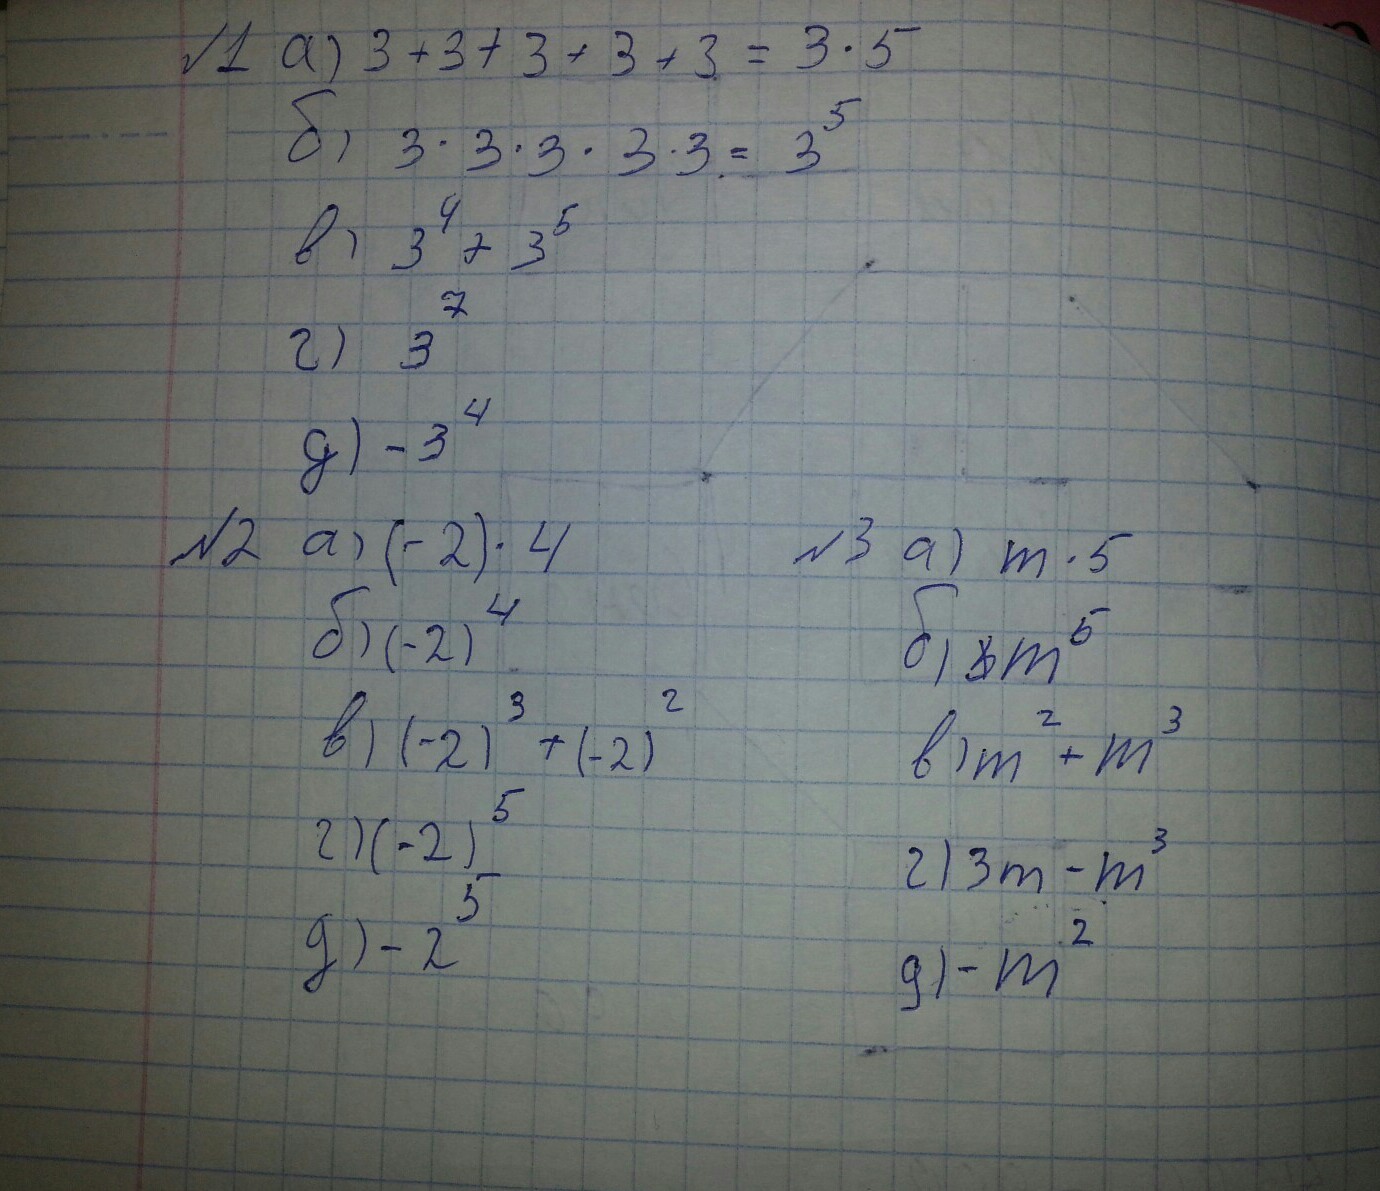 №1 а) 3+3+3+3+3 = 3·5
б) 3·3·3·3·3 = 3⁵
в) 3⁴ + 3⁵
г) 3⁷
д) -3⁴
№2 а) (-2)·4
б) (-2)⁴
в) (-2)³ + (-2)²
г) (-2)⁵
д) -2⁵
№3 а) m·5
б) m⁵
в) m² + m³
г) 3m - m³
д) -m²